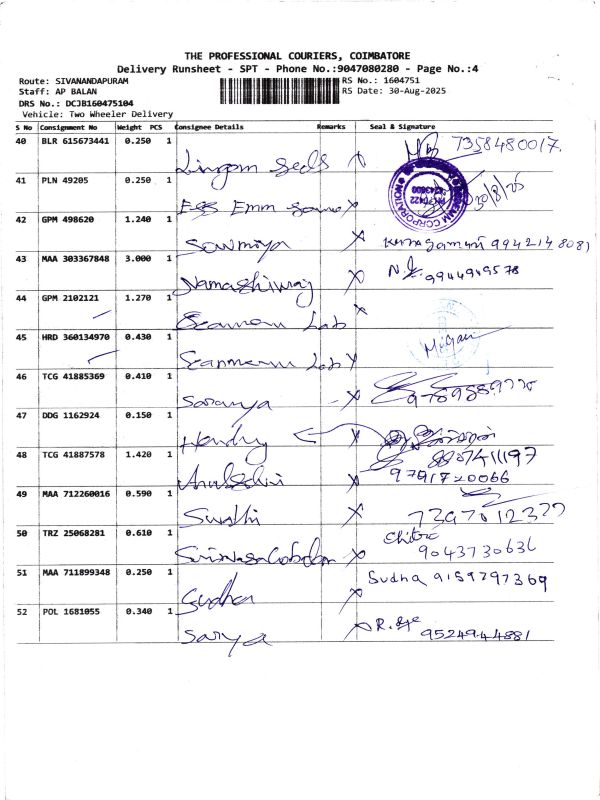 THE PROFESSIONAL COURIERS, COIMBATORE
Delivery Runsheet - SPT - Phone No.:9047080280 - Page No.:4
Route: SIVANANDAPURAM RS No.: 1604751
Staff: AP BALAN RS Date: 30-Aug-2025
DRS No.: DCJB160475104
Vehicle: Two Wheeler Delivery
S No Consignment No Weight PCS Consignee Details Remarks Seal & Signature
40 BLR 615673441 0.250 1 Lingam Seeds 7358480017.
41 PLN 49205 0.250 1 Ess Emm 30/8/25
42 GPM 498620 1.240 1 Sowmiya 9942148081
43 MAA 303367848 3.000 1 Namashivay 9944949578
44 GPM 2102121 1.270 1 Lab
45 HRD 360134970 0.430 1 Lab
46 TCG 41885369 0.410 1 Saranya
47 DDG 1162924 0.150 1 Hendry
48 TCG 41887578 1.420 1 8807411197
9791720066
49 MAA 712260016 0.590 1 Swathi
50 TRZ 25068281 0.610 1 Chitra
9043730636
51 MAA 711899348 0.250 1 Sudha Sudha 9159797369
52 POL 1681055 0.340 1 Sarya 9524944881